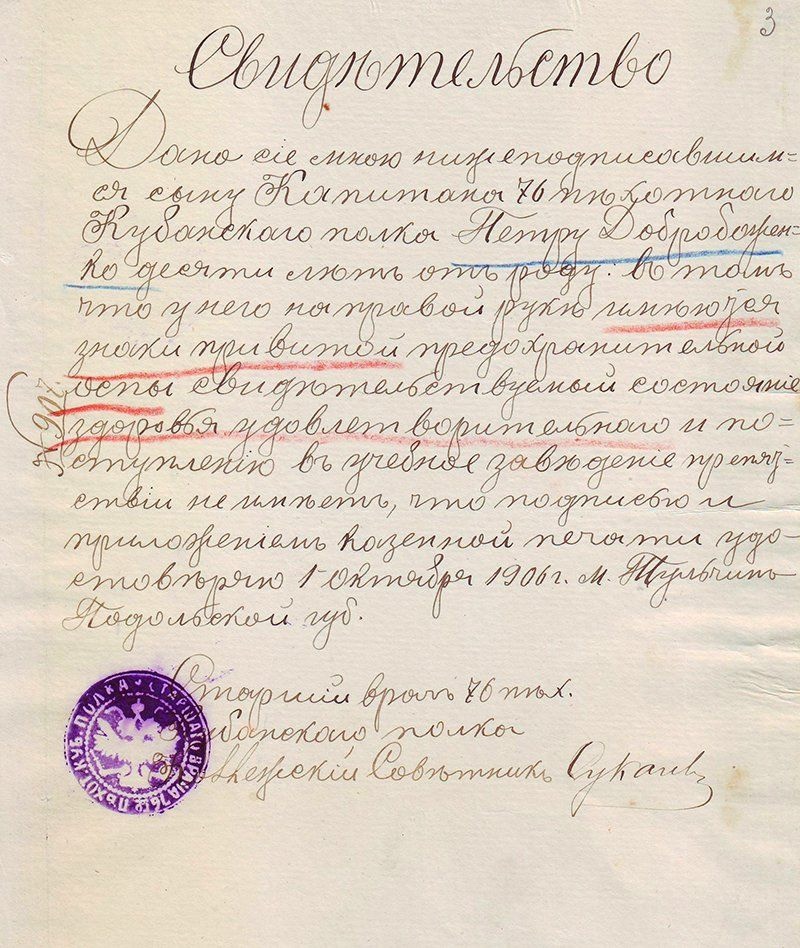 3
Свидѣтельство
Дано сіе мною нижеподписавшим-
ся сыну Капитана 76 пѣхотнаго
Кубанскаго полка Петру Добробожен-
ко десяти лѣтъ отъ роду. въ томъ
что у него на правой рукѣ имѣются
знаки привитой предохранительной
оспы свидѣтельствуемый состояніе
здоровья удовлетворительнаго и по=
ступленію въ учебное завѣденіе препят-
ствій не имѣетъ, что подписью и
приложеніемъ казенной печати удо-
стовѣряю 1 Октября 1906 г. м. Тульчинъ
Подольской губ.
№ 907
Старшій врачъ 76 пѣх.
Кубанскаго полка
Совѣтникъ
СТАРШАГО ВРАЧА 76го ПѢХОТ. КУБ. ПОЛКА